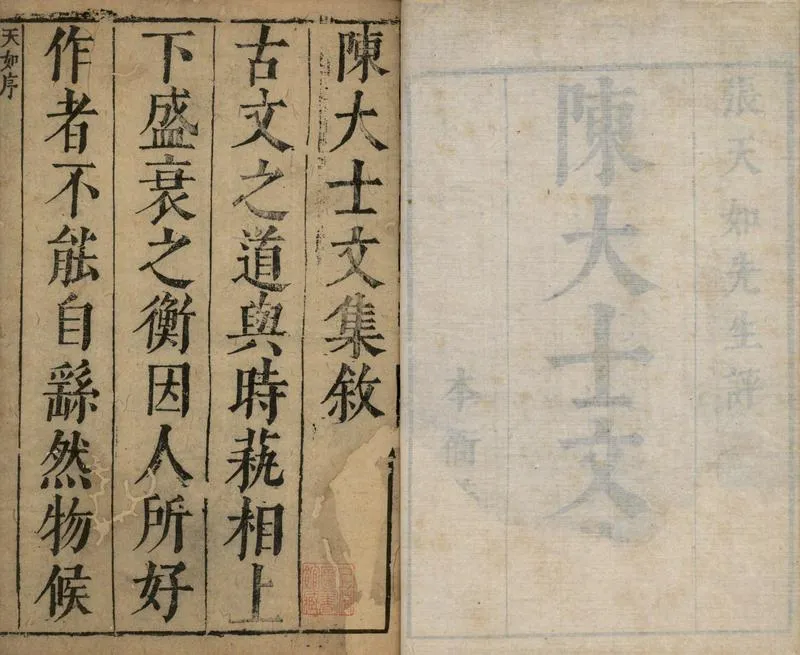 張天如先生評
陳大士文
本衙
陳大士文集敘
古文之道與時蓺相上
下盛衰之衡因人所好
作者不能自繇然物候
天如序